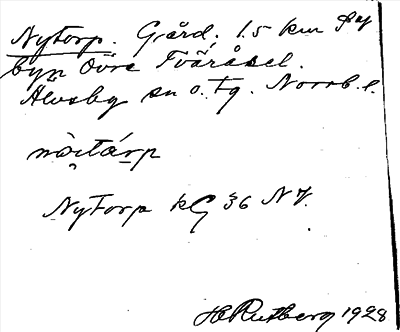 Nytorp. Gård. 1.5 km S af
byn Övre Tväråsel.
Älvsby sn o. tg. Norrb. l.
nỳtár̲p
Nytorp kG 36 NV.
HERutberg 1928